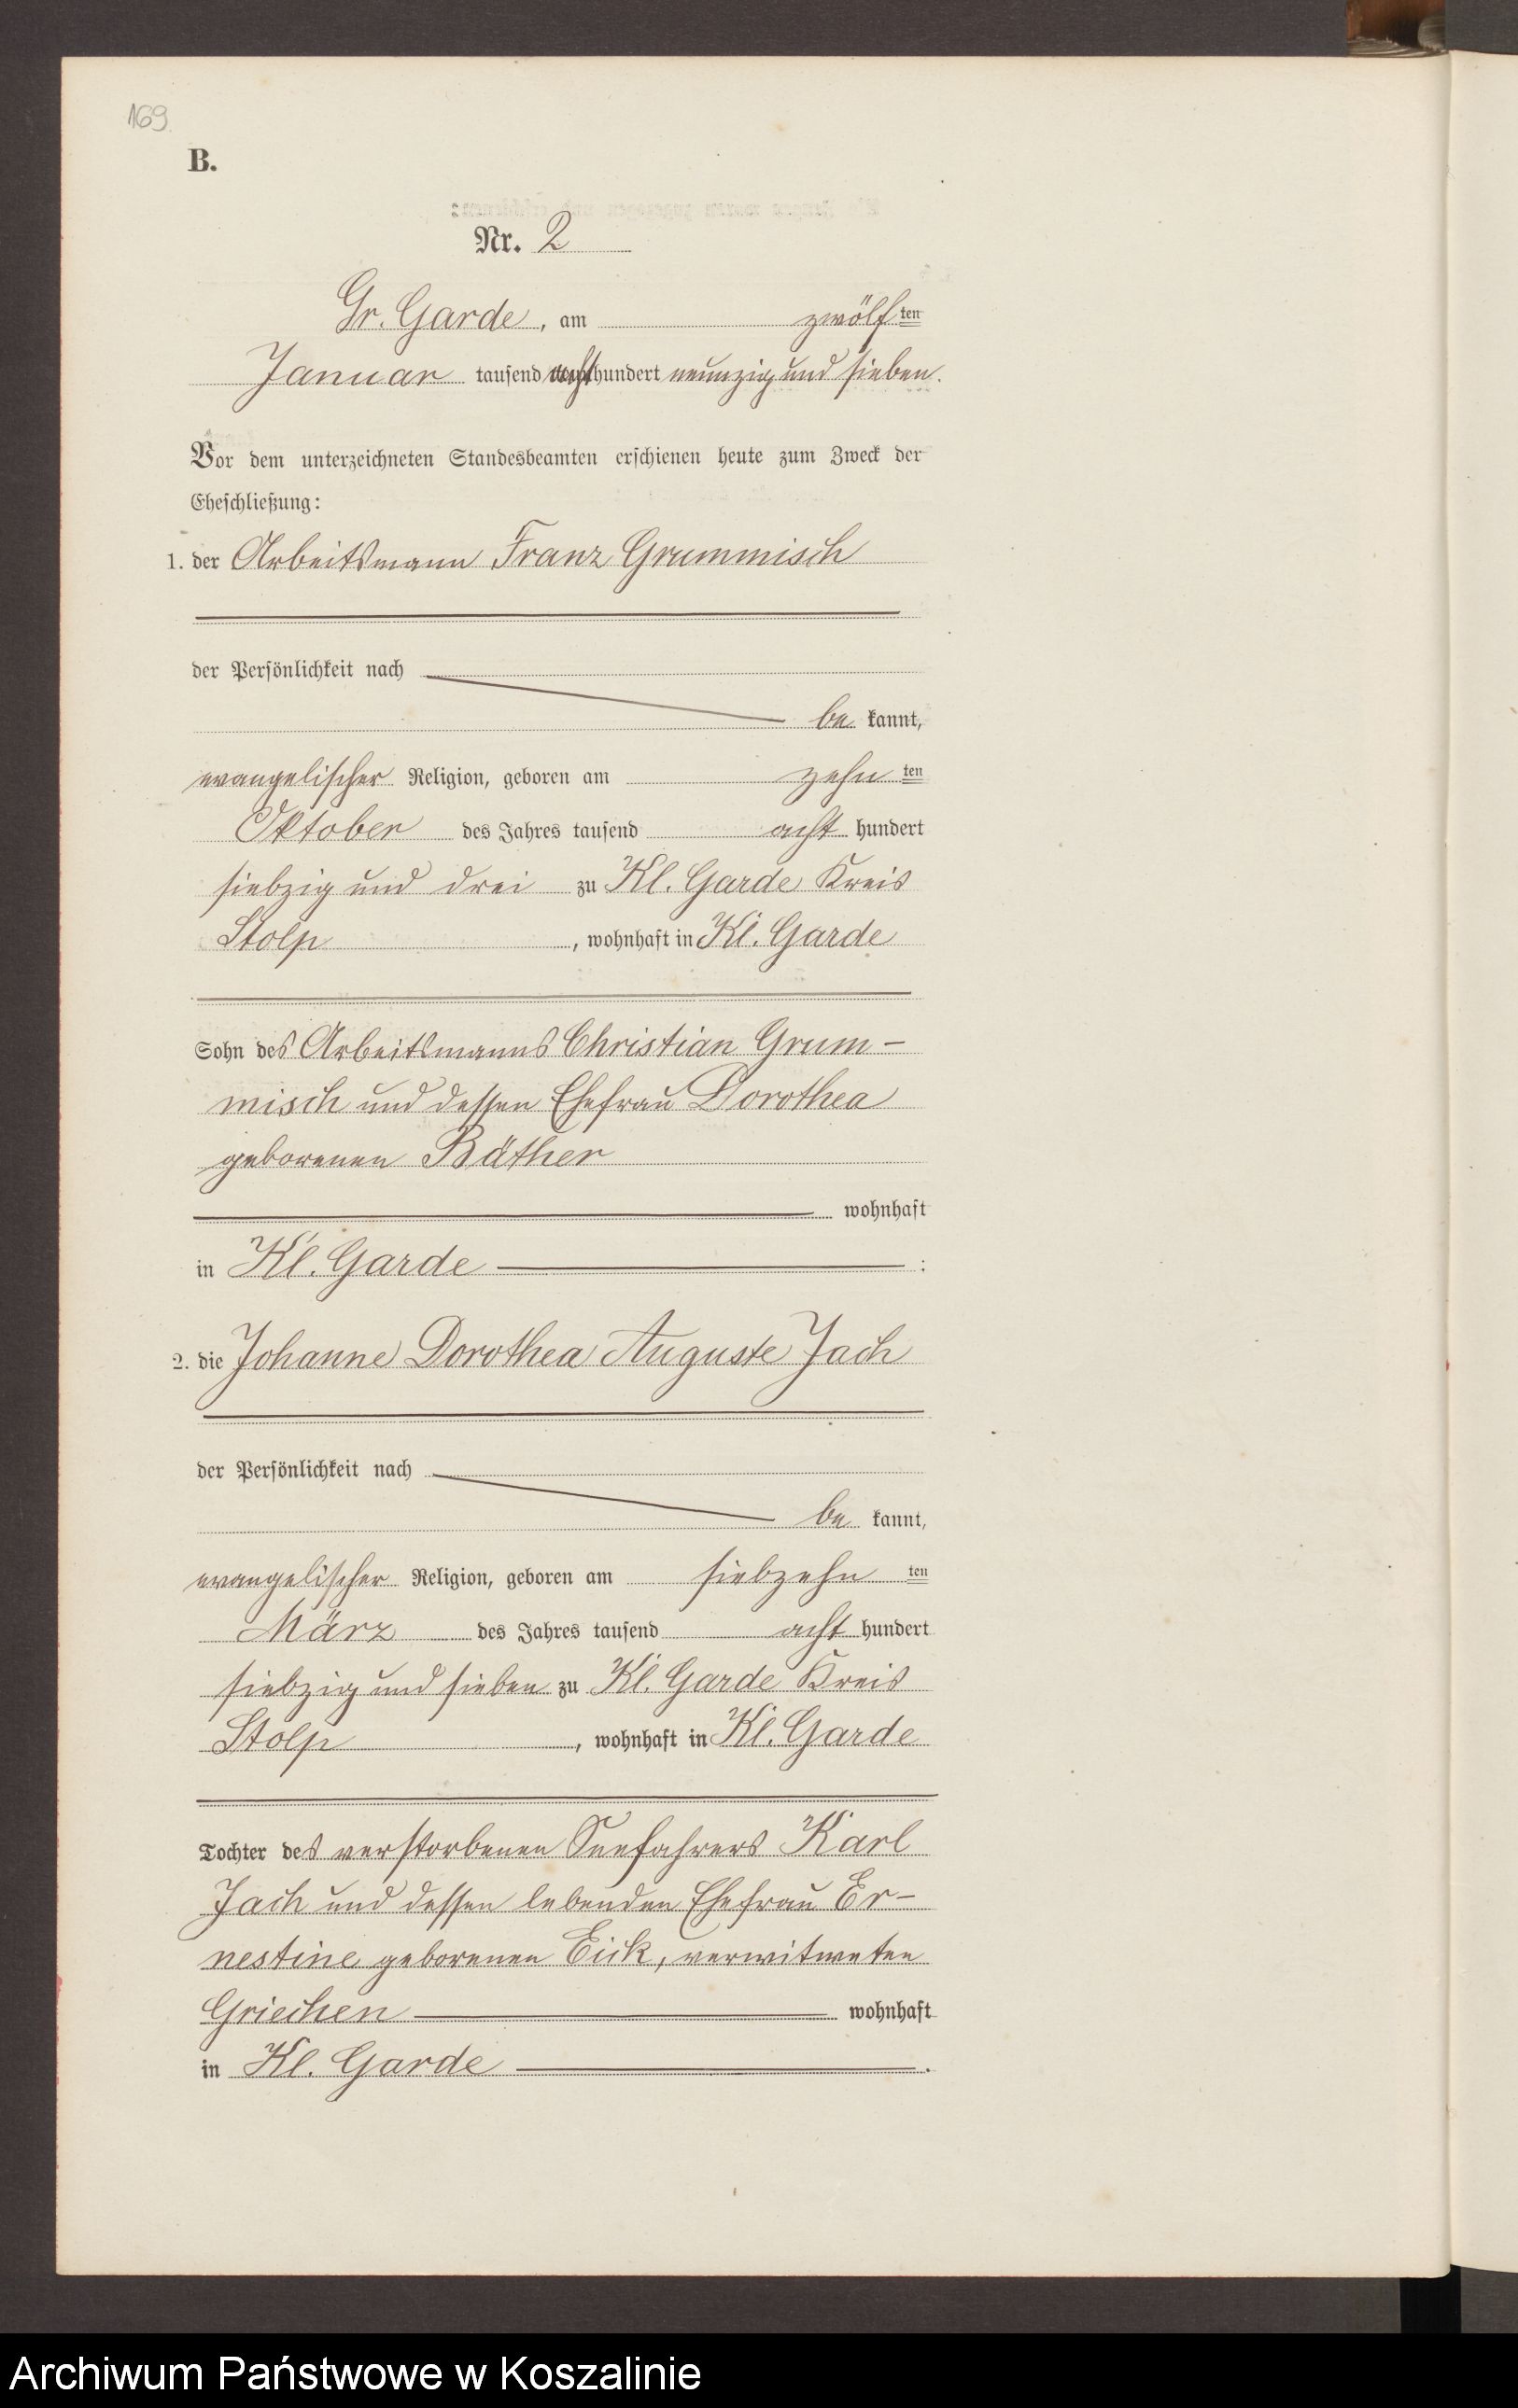 169
B.
Nr. 2
Gr. Garde, am zwölf ten
Januar tausend acht hundert neunzig und sieben.
Vor dem unterzeichneten Standesbeamten erschienen heute zum Zweck der
Eheschließung:
1. der Arbeitsmann Franz Grummisch
der Persönlichkeit nach
be kannt,
evangelischer Religion, geboren am zehn ten
Oktober des Jahres tausend acht hundert
siebzig und drei zu Kl. Garde Kreis
Stolp, wohnhaft in Kl. Garde
Sohn des Arbeitsmanns Christian Grum-
misch und dessen Ehefrau Dorothea
geborenen Bäther
wohnhaft
in Kl. Garde :
2. die Johanne Dorothea Auguste Jach
der Persönlichkeit nach
be kannt,
evangelischer Religion, geboren am siebzehn ten
März des Jahres tausend acht hundert
siebzig und sieben zu Kl. Garde Kreis
Stolp, wohnhaft in Kl. Garde
Tochter des verstorbenen Seefahrers Karl
Jach und dessen lebenden Ehefrau Er-
nestine geborenen Eick, verwitweten
Griechen wohnhaft
in Kl. Garde.
Archiwum Państwowe w Koszalinie